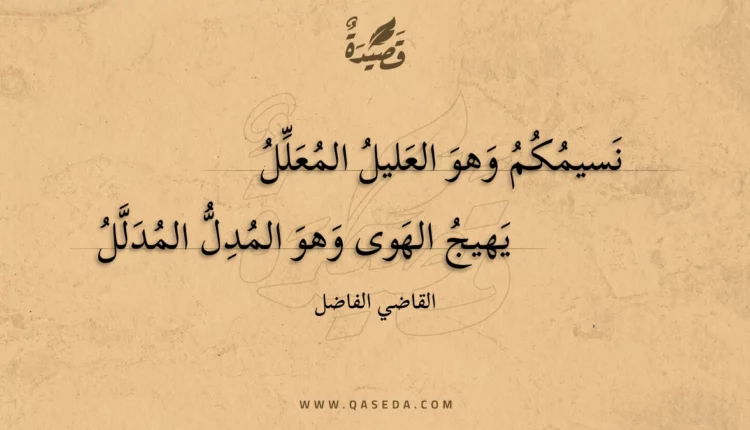 قَصِيْدَةٌ
نَسيمُكُمُ وَهوَ العَليلُ المُعَلِّلُ
يَهيجُ الهَوى وَهوَ المُدِلُّ المُدَلَّلُ
القاضي الفاضل
WWW.QASEDA.COM